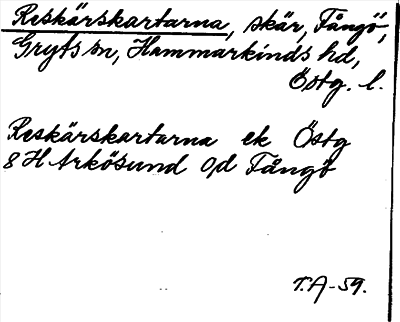 Reskärskartarna, skär, Fångö,
Gryts sn, Hammarkinds hd,
Östg. l.
Reskärskartarna ek Östg
8 H Arkösund o/d Fångö
T.A-59.